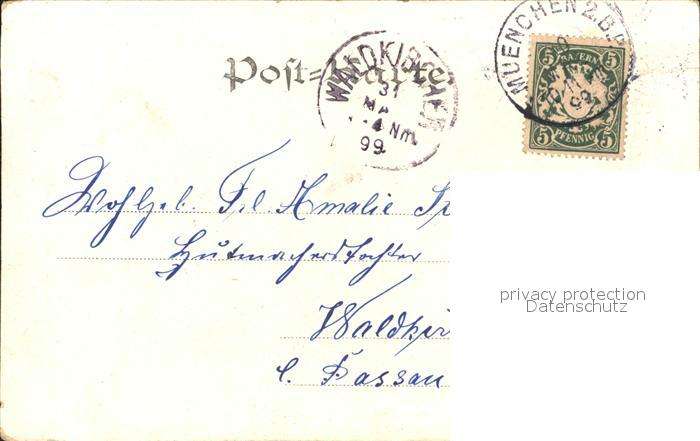 Post-Karte
WALDKIRCHEN
31
MA
4 Nm.
99
MUENCHEN 2.B.P.
99
BAYERN
5 5
PFENNIG
Wohlgeb. Frl. Amalie
Hutmacherstochter
Waldkir
b. Passau
privacy protection
Datenschutz